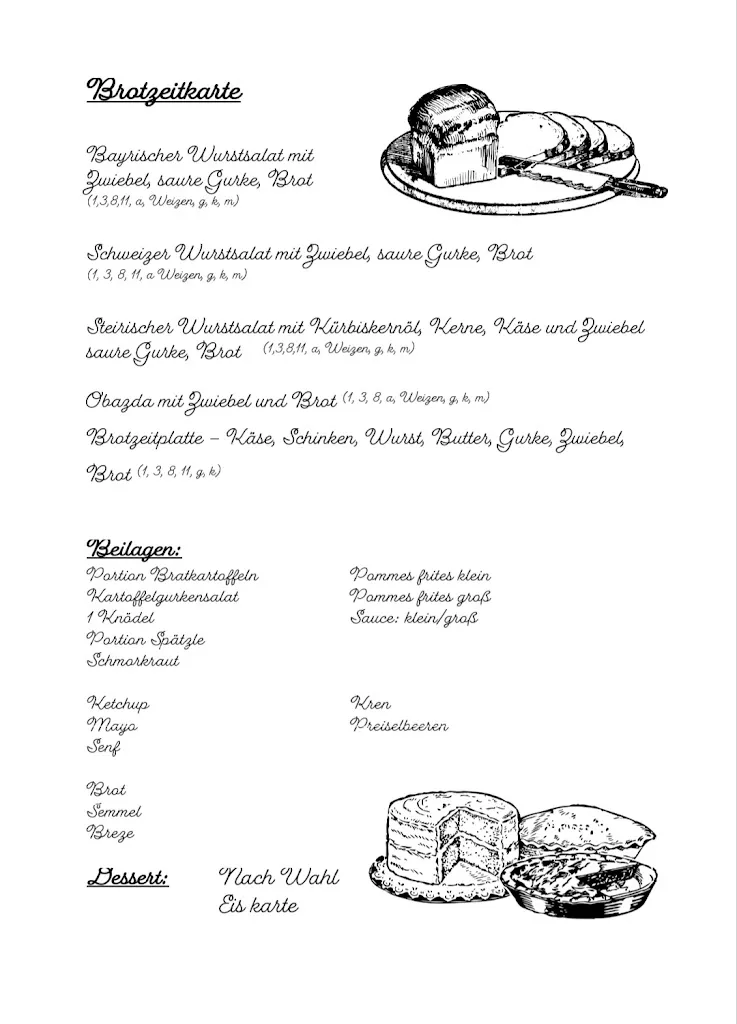 Brotzeitkarte
Bayrischer Wurstsalat mit
Zwiebel, saure Gurke, Brot
(1,3,8,11, a, Weizen, g, k, m)
Schweizer Wurstsalat mit Zwiebel, saure Gurke, Brot
(1, 3, 8, 11, a Weizen, g, k, m)
Steirischer Wurstsalat mit Kürbiskernöl, Kerne, Käse und Zwiebel
saure Gurke, Brot (1,3,8,11, a, Weizen, g, k, m)
Obazda mit Zwiebel und Brot (1, 3, 8, a, Weizen, g, k, m)
Brotzeitplatte – Käse, Schinken, Wurst, Butter, Gurke, Zwiebel,
Brot (1, 3, 8, 11, g, k)
Beilagen:
Portion Bratkartoffeln
Kartoffelgurkensalat
1 Knödel
Portion Spätzle
Schmorkraut
Pommes frites klein
Pommes frites groß
Sauce: klein/groß
Ketchup
Mayo
Senf
Kren
Preiselbeeren
Brot
Semmel
Breze
Dessert: Nach Wahl
Eis karte